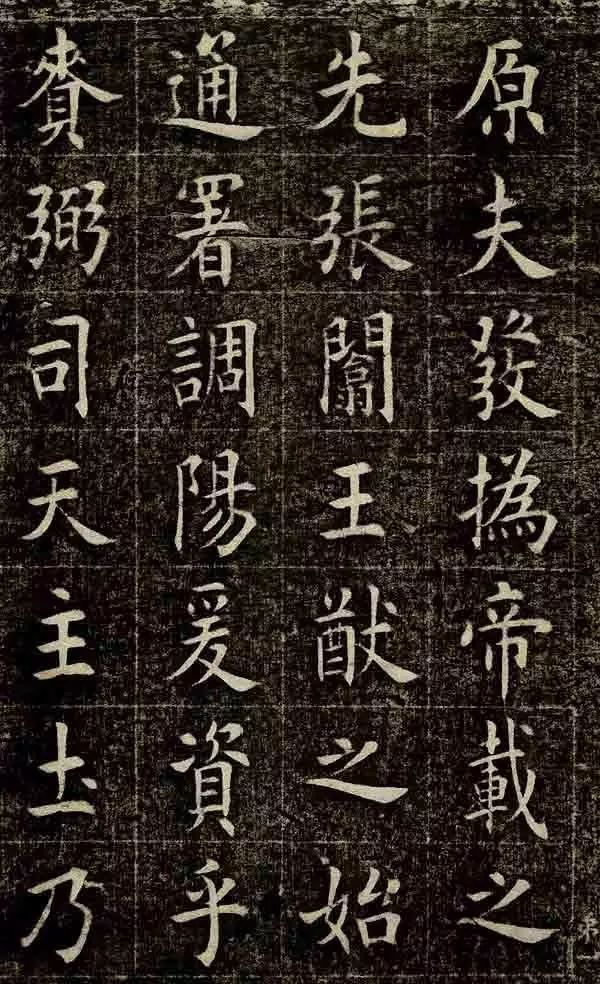 原夫發撝帝載之
先張闟王猷之始
通署調陽爰資乎
賚弼司天主圡乃